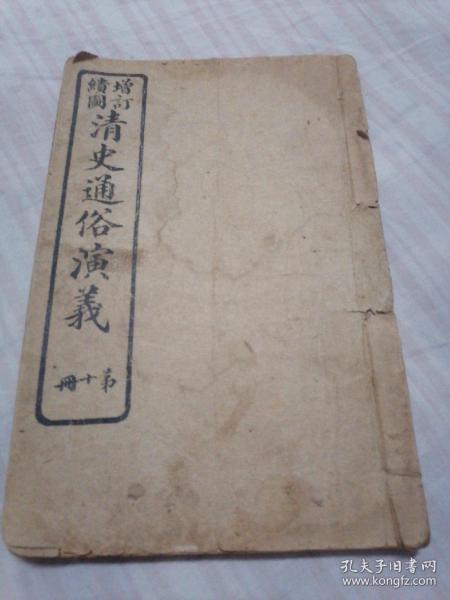 增訂
繪圖
清史通俗演義
第十冊
孔夫子旧书网
www.kongfz.com